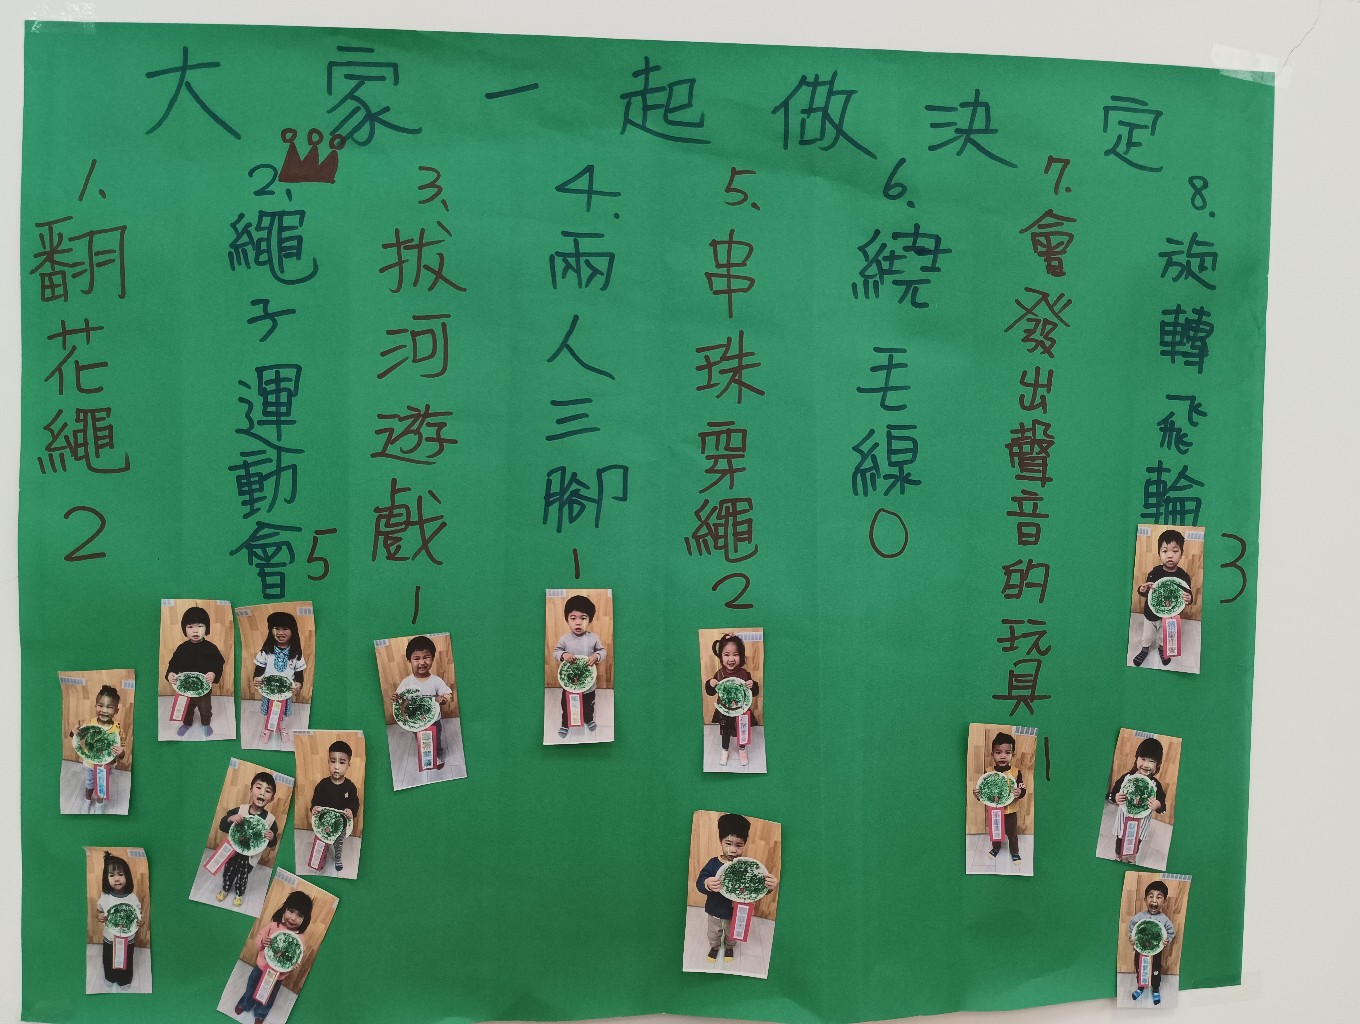 大家一起做決定
1. 翻花繩 2
2. 繩子運動會 5
3. 拔河遊戲 1
4. 兩人三腳 1
5. 串珠穿繩 2
6. 繞毛線 0
7. 會發出聲音的玩具 1
8. 旋轉飛輪 3